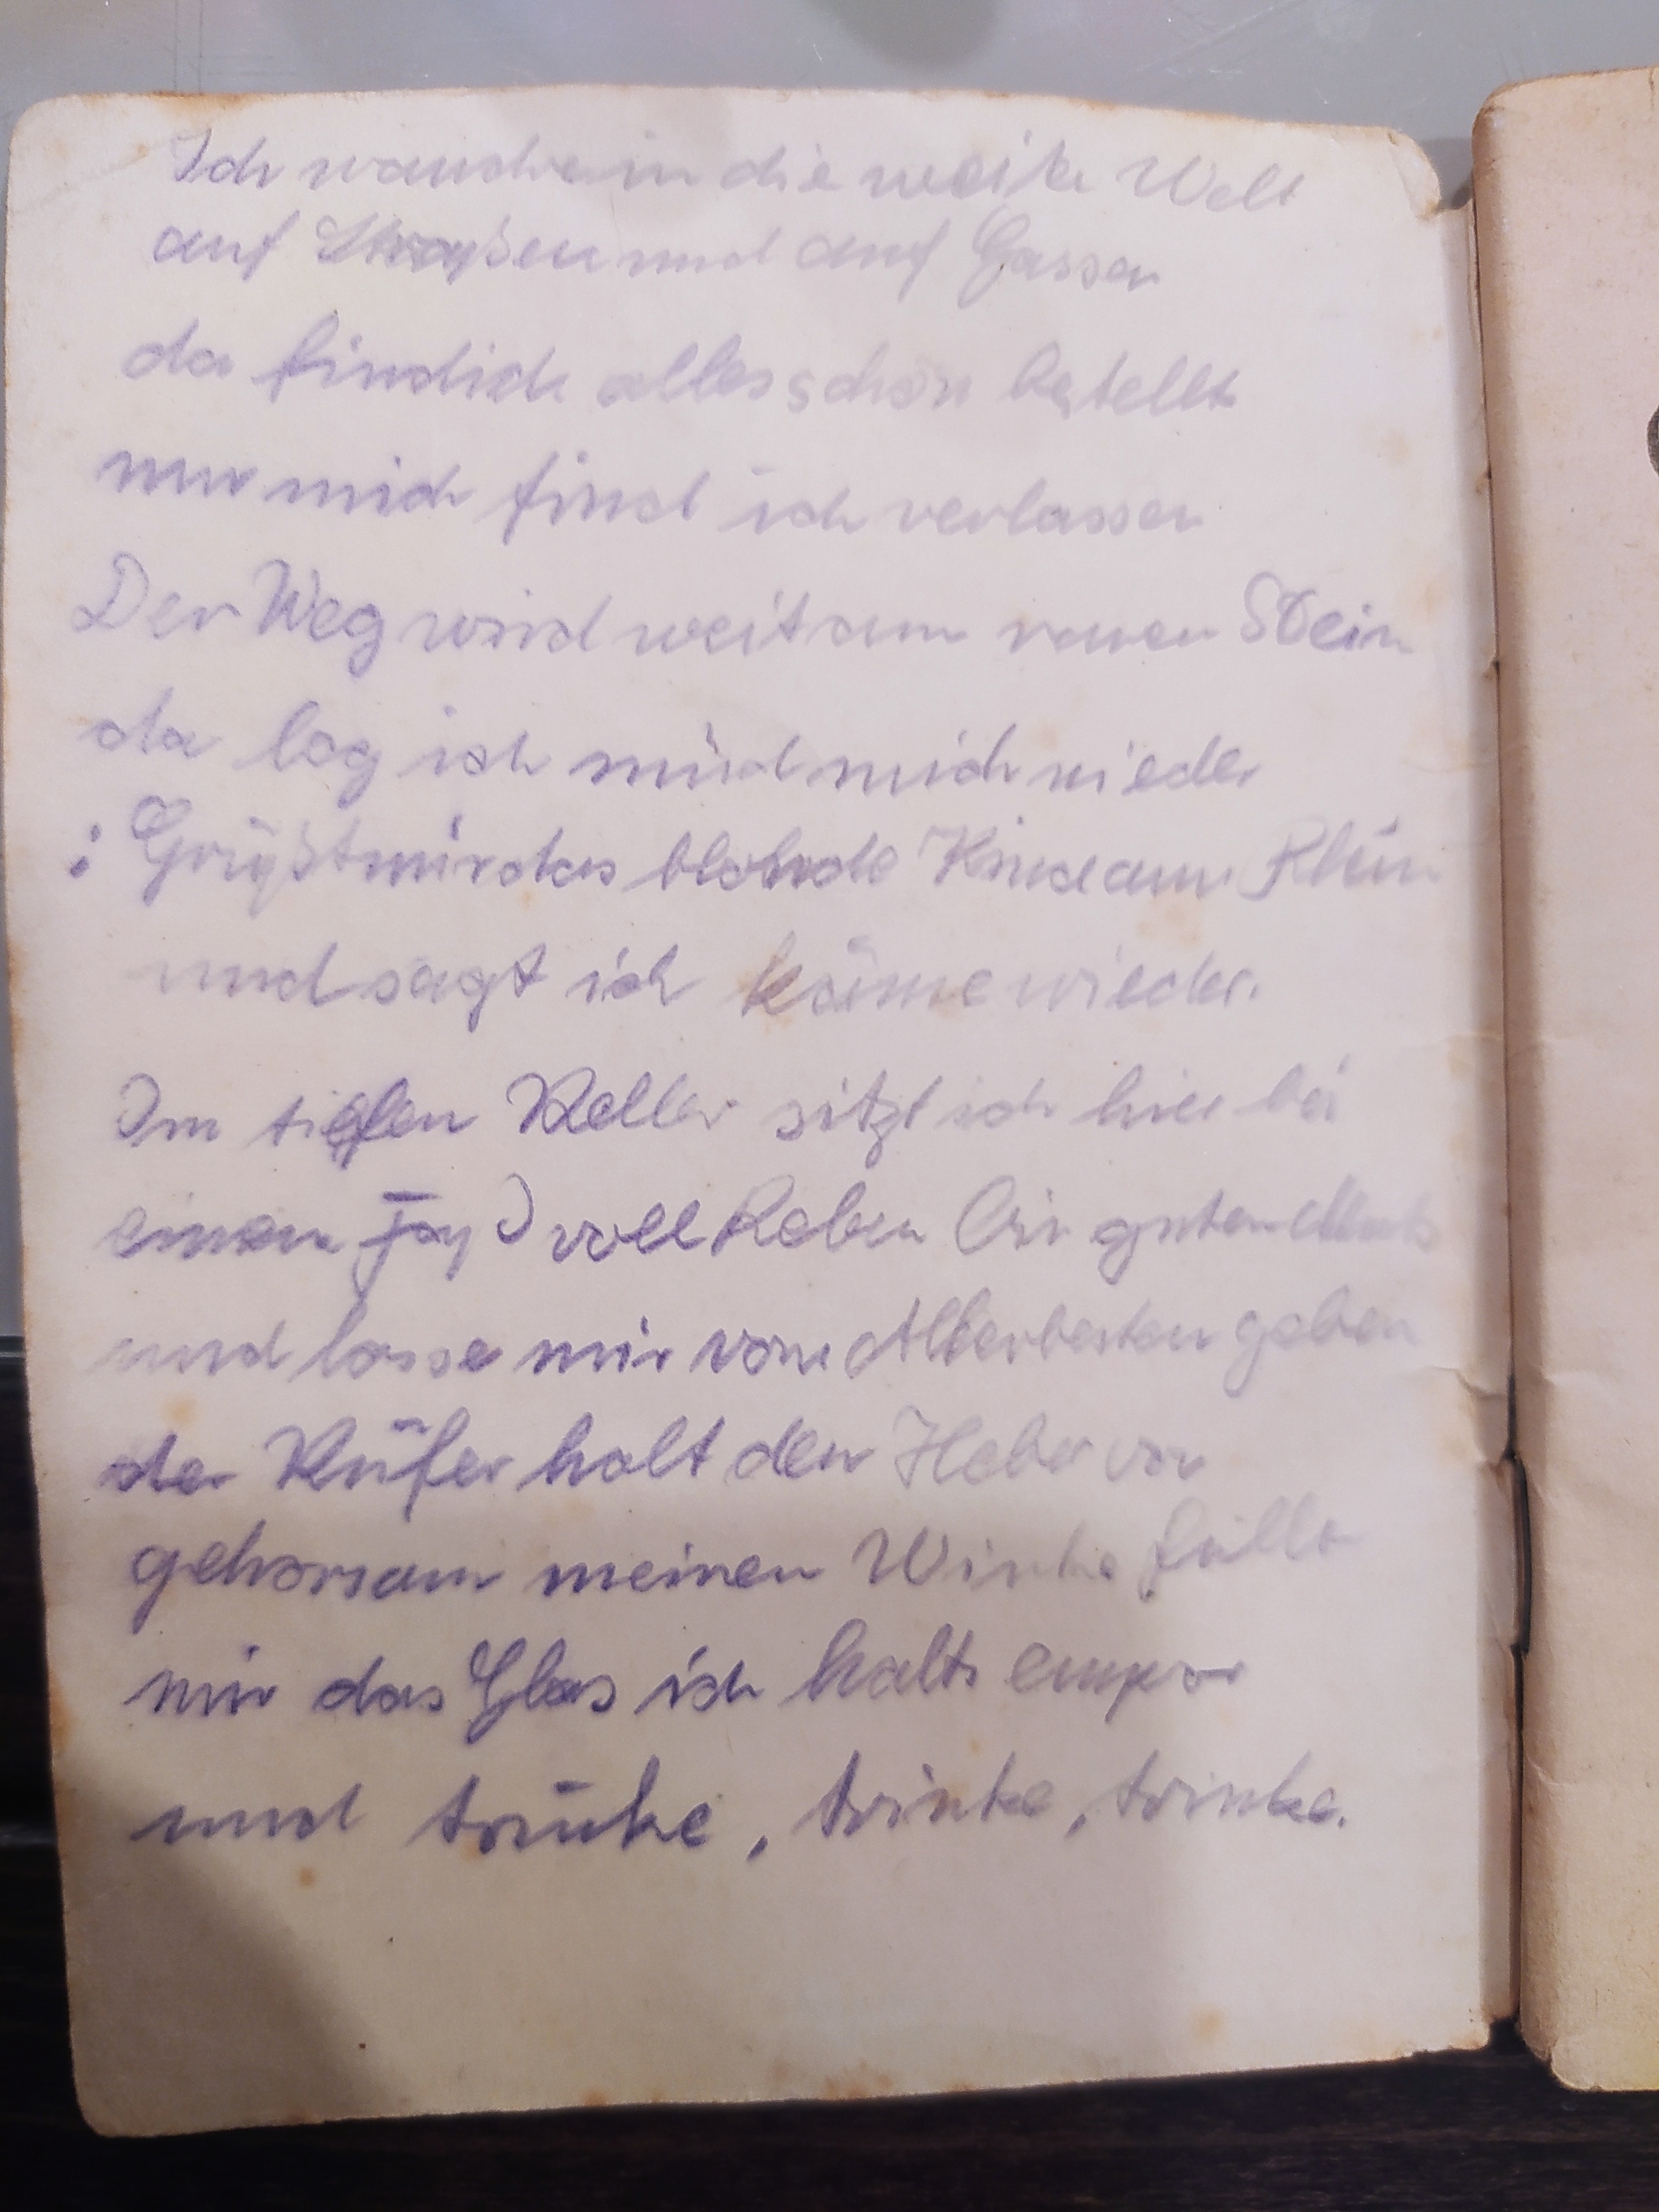 Ich wandre in die weite Welt
auf Straßen und auf Gassen
da find ich alles schön bestellt
nur mich find ich verlassen
Der Weg wird weit am rauen Stein
da leg ich müd mich nieder
: Grüßt mir das blonde Kind am Rhein
und sagt ich käme wieder.
Im tiefen Keller sitz ich hier bei
einem Faß voll Reben bin guten Muts
und lasse mir vom Allerbesten geben
der Küfer holt den Heber vor
gehorsam meinen Winke füllt
mir das Glas ich halts empor
und trinke, trinke, trinke.